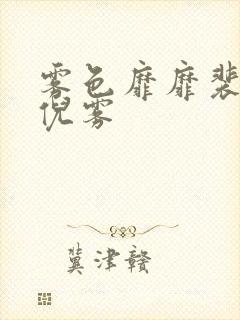 雾色靡靡裴
倪雾
冀津赣